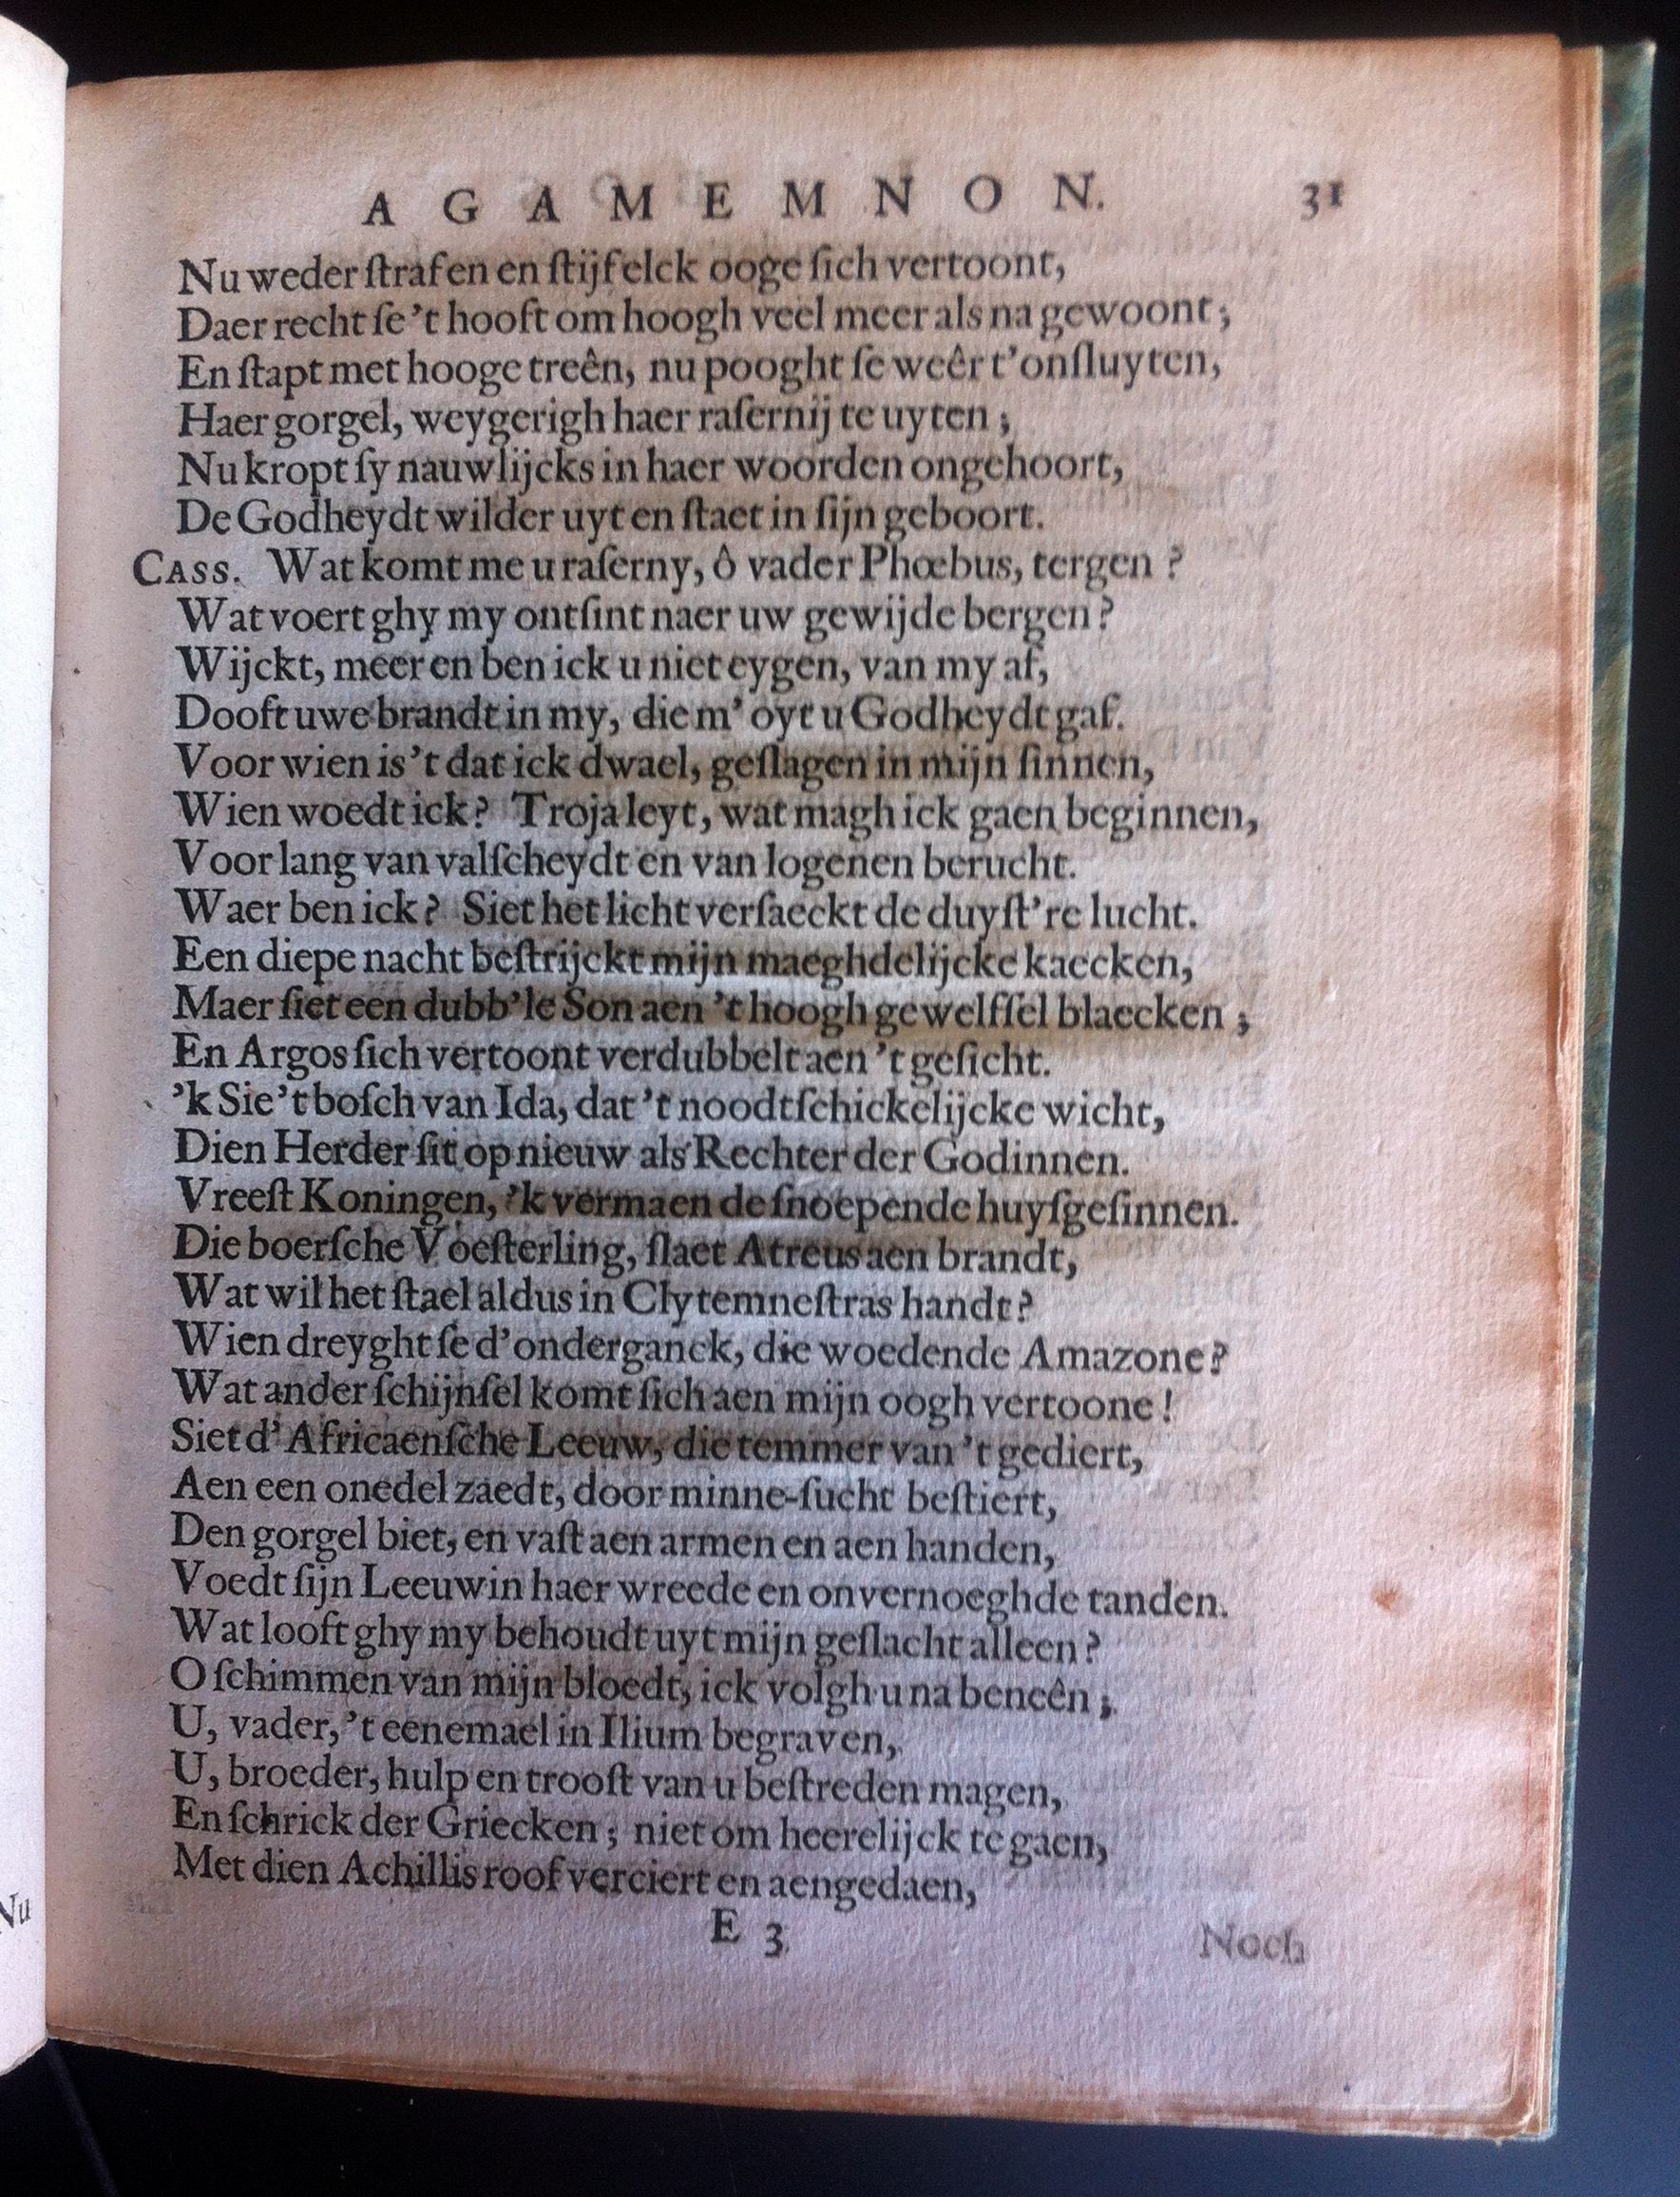 AGAMEMNON. 31
Nu weder ſtraf en en ſtijf elck ooge ſich vertoont,
Daer recht ſe 't hooft om hoogh veel meer als na gewoont;
En ſtapt met hooge treên, nu pooght ſe weêr t'onſluyten,
Haer gorgel, weygerigh haer raſernij te uyten;
Nu kropt ſy nauwlijcks in haer woorden ongehoort,
De Godheydt wilder uyt en ſtaet in ſijn geboort.
CASS. Wat komt me u raſerny, ô vader Phœbus, tergen?
Wat voert ghy my ontſint naer uw gewijde bergen?
Wijckt, meer en ben ick u niet eygen, van my af,
Dooft uwe brandt in my, die m' oyt u Godheydt gaf.
Voor wien is 't dat ick dwael, geſlagen in mijn ſinnen,
Wien woedt ick? Troja leyt, wat magh ick gaen beginnen,
Voor lang van valſcheydt en van logenen berucht.
Waer ben ick? Siet het licht verſaeckt de duyſt're lucht.
Een diepe nacht beſtrijckt mijn maeghdelijcke kaecken,
Maer ſiet een dubb'le Son aen 't hoogh gewelfſel blaecken;
En Argos ſich vertoont verdubbelt aen 't geſicht.
'k Sie 't boſch van Ida, dat 't noodtſchickelijcke wicht,
Dien Herder ſit op nieuw als Rechter der Godinnen.
Vreeſt Koningen, 'k vermaen de ſnoepende huyſgeſinnen.
Die boerſche Voeſterling, ſlaet Atreus aen brandt,
Wat wil het ſtael aldus in Clytemneſtras handt?
Wien dreyght ſe d'onderganck, die woedende Amazone?
Wat ander ſchijnſel komt ſich aen mijn oogh vertoone!
Siet d' Africaenſche Leeuw, die temmer van 't gediert,
Aen een onedel zaedt, door minne-ſucht beſtiert,
Den gorgel biet, en vaſt aen armen en aen handen,
Voedt ſijn Leeuwin haer wreede en onvernoeghde tanden.
Wat looft ghy my behoudt uyt mijn geſlacht alleen?
O ſchimmen van mijn bloedt, ick volgh u na beneên;
U, vader, 't eenemael in Ilium begraven,
U, broeder, hulp en trooſt van u beſtreden magen,
En ſchrick der Griecken; niet om heerelijck te gaen,
Met dien Achillis roof verciert en aengedaen,
E 3 Noch
Nu